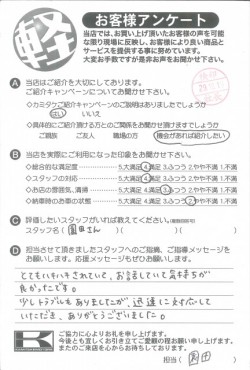 軽
お客様アンケート
当店では、お買い上げ頂いたお客様の声を可能
な限り現場に反映し、お客様により良い商品と
サービスを提供する事に努めています。
大変お手数ですが是非お声をお聞かせ下さい。
A 当店はご紹介を大切にしております。
ご紹介キャンペーンについてお聞かせ下さい。
◇カミタケご紹介キャンペーンのご説明はありましたでしょうか
はい いいえ
◇具体的にご紹介頂ける方とのご関係をお聞かせ頂けますでしょうか
ご親族 ご友人 職場の方 機会があれば紹介したい
B 当店を実際にご利用になった印象をお聞かせ下さい。
◇総合的な満足度 5.大満足 4.満足 3.ふつう 2.やや不満 1.不満
◇スタッフの対応 5.大満足 4.満足 3.ふつう 2.やや不満 1.不満
◇お店の雰囲気、清掃 5.大満足 4.満足 3.ふつう 2.やや不満 1.不満
◇納車時のお車の状態 5.大満足 4.満足 3.ふつう 2.やや不満 1.不満
C 評価したいスタッフがいれば教えてください。
スタッフ名( 園田さん )
D 担当させて頂きましたスタッフへのご指摘、ご指導メッセージをお
願い致します。応援メッセージもぜひお願いします。
とてもいきいきされていて、お話していて気持ちが
良かったです。
少しトラブルもありましたが、迅速に対応して
いただき、ありがとうございました。
K
ご協力に心よりお礼を申し上げます。
今後とも宜しくお引き立てご愛顧の程お願い申し上げます。
またのご来店を心からお待ちしております。
担当( 園田 )